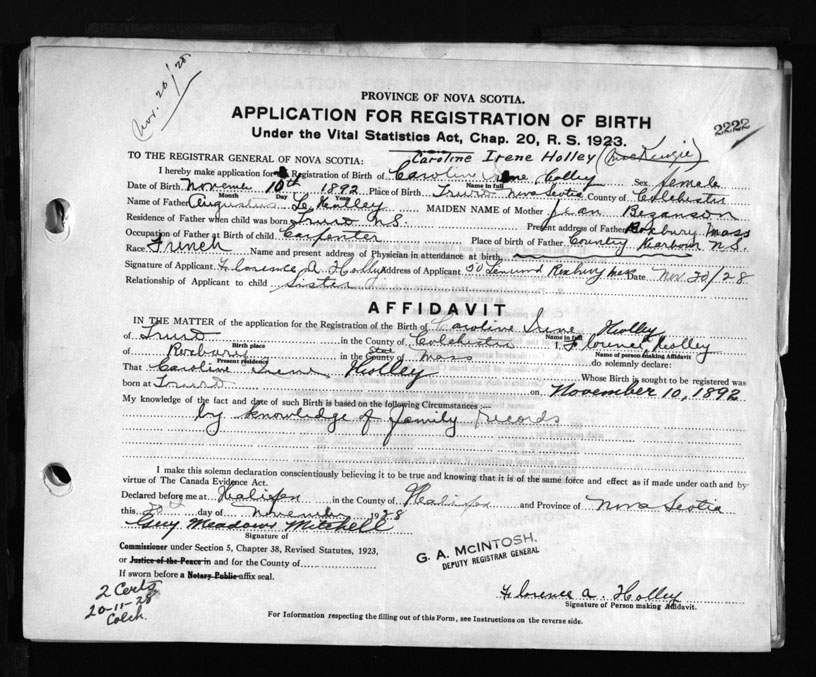 Nov. 20/28
PROVINCE OF NOVA SCOTIA.
APPLICATION FOR REGISTRATION OF BIRTH
2222
Under the Vital Statistics Act, Chap. 20, R. S. 1923.
Caroline Irene Holley (MacKenzie)
TO THE REGISTRAR GENERAL OF NOVA SCOTIA:
I hereby make application for Registration of Birth of Caroline Irene Holley Sex female
Name in full
Date of Birth November 10th 1892 Place of Birth Truro Nova Scotia County of Colchester
Month Day Year
Name of Father Augustus Holley MAIDEN NAME of Mother Jean Bezanson
Residence of Father when child was born Truro N.S. Present address of Father Roxbury Mass
Occupation of Father at Birth of child Carpenter Place of birth of Father Country Harbour N.S.
Race French Name and present address of Physician in attendance at birth,
Signature of Applicant Florence A Holley Address of Applicant 50 Roxbury Mass Date Nov 20/28
Relationship of Applicant to child Sister
AFFIDAVIT
IN THE MATTER of the application for the Registration of the Birth of Caroline Irene Holley
Name in full
of Truro in the County of Colchester I, Florence Holley
Birth place Name of person making Affidavit
of Roxbury in the County of State Mass do solemnly declare:
Present residence
That Caroline Irene Holley Whose Birth is sought to be registered was
born at Truro on November 10, 1892
My knowledge of the fact and date of such Birth is based on the following Circumstances:—
by knowledge of family records
I make this solemn declaration conscientiously believing it to be true and knowing that it is of the same force and effect as if made under oath and by
virtue of The Canada Evidence Act.
Declared before me at Halifax in the County of Halifax and Province of Nova Scotia
this 20th day of November 1928
Guy Meadows Mitchell
Signature of
Commissioner under Section 5, Chapter 38, Revised Statutes, 1923,
or Justice of the Peace in and for the County of
If sworn before a Notary Public affix seal.
G. A. McINTOSH.
DEPUTY REGISTRAR GENERAL
2 Certs
20-11-28
Colch.
Florence A. Holley
Signature of Person making Affidavit.
For Information respecting the filling out of this Form, see Instructions on the reverse side.